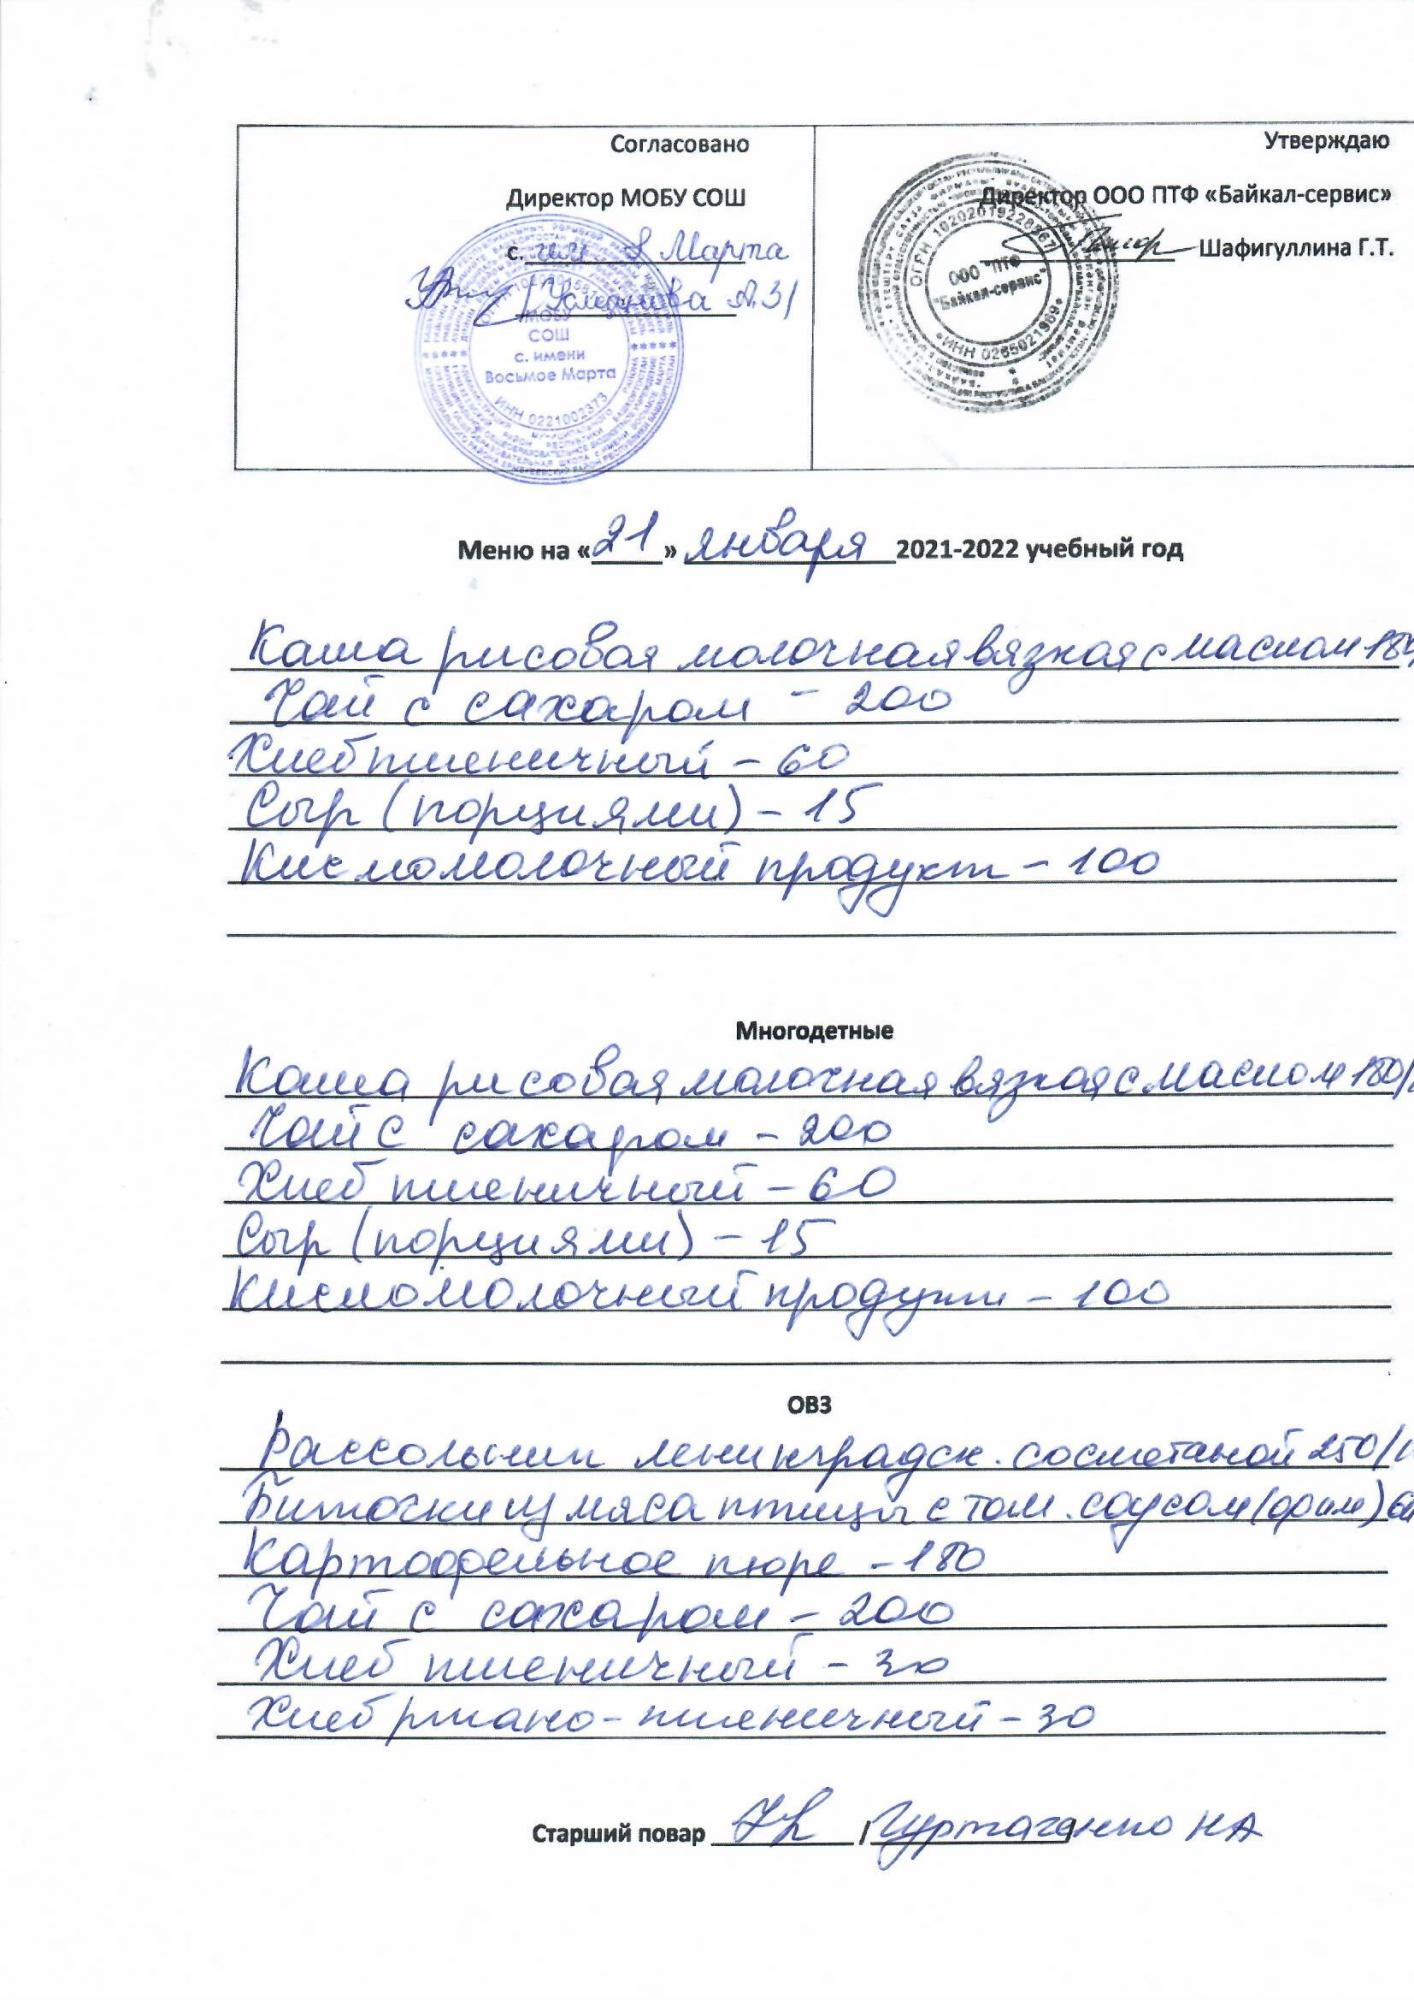 Согласовано
Директор МОБУ СОШ
с. им 8 Марта
Усманова А.З/
МОБУ
СОШ
с. имени
Восьмое Марта
ИНН 0221002373
Утверждаю
Директор ООО ПТФ «Байкал-сервис»
Шафигуллина Г.Т.
ООО "ПТФ
"Байкал-сервис"
ИНН 0265021969
Меню на «21» января 2021-2022 учебный год
Каша рисовая молочная вязкая с маслом
Чай с сахаром - 200
Хлеб пшеничный - 60
Сыр (порциями) - 15
Кисломолочный продукт - 100
Многодетные
Каша рисовая молочная вязкая с маслом 180/
Чай с сахаром - 200
Хлеб пшеничный - 60
Сыр (порциями) - 15
Кисломолочный продукт - 100
ОВЗ
Рассольник ленинградск. со сметаной 250/
Биточки из мяса птицы с том. соусом (филе)
Картофельное пюре - 180
Чай с сахаром - 200
Хлеб пшеничный - 30
Хлеб ржано-пшеничный - 30
Старший повар / НА